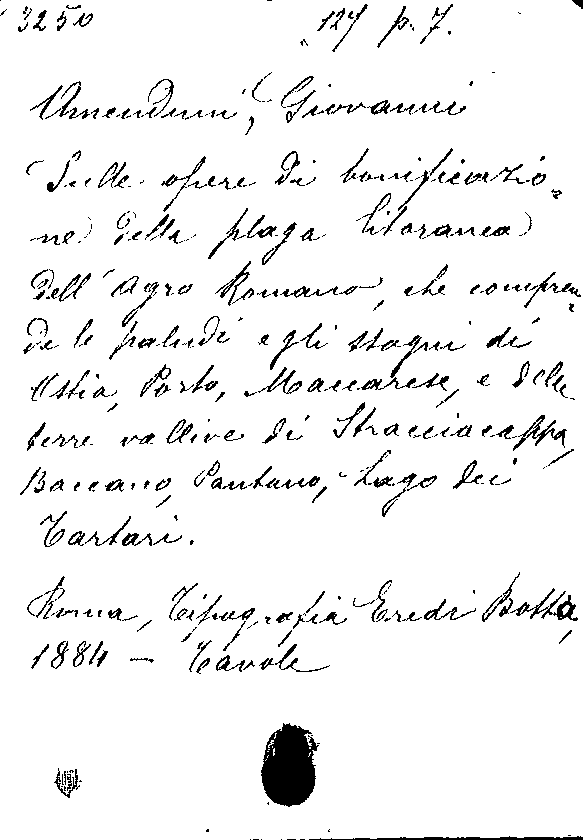 3250 127 p. 7.
Amenduni, Giovanni
Sulle opere di bonificazio-
ne della plaga litoranea
dell'Agro Romano, che compren-
de le paludi e gli stagni di
Ostia, Porto, Maccarese, e delle
terre vallive di Stracciacappa,
Baccano, Pantano, Lago dei
Tartari.
Roma, Tipografia Eredi Botta,
1884 — Tavole